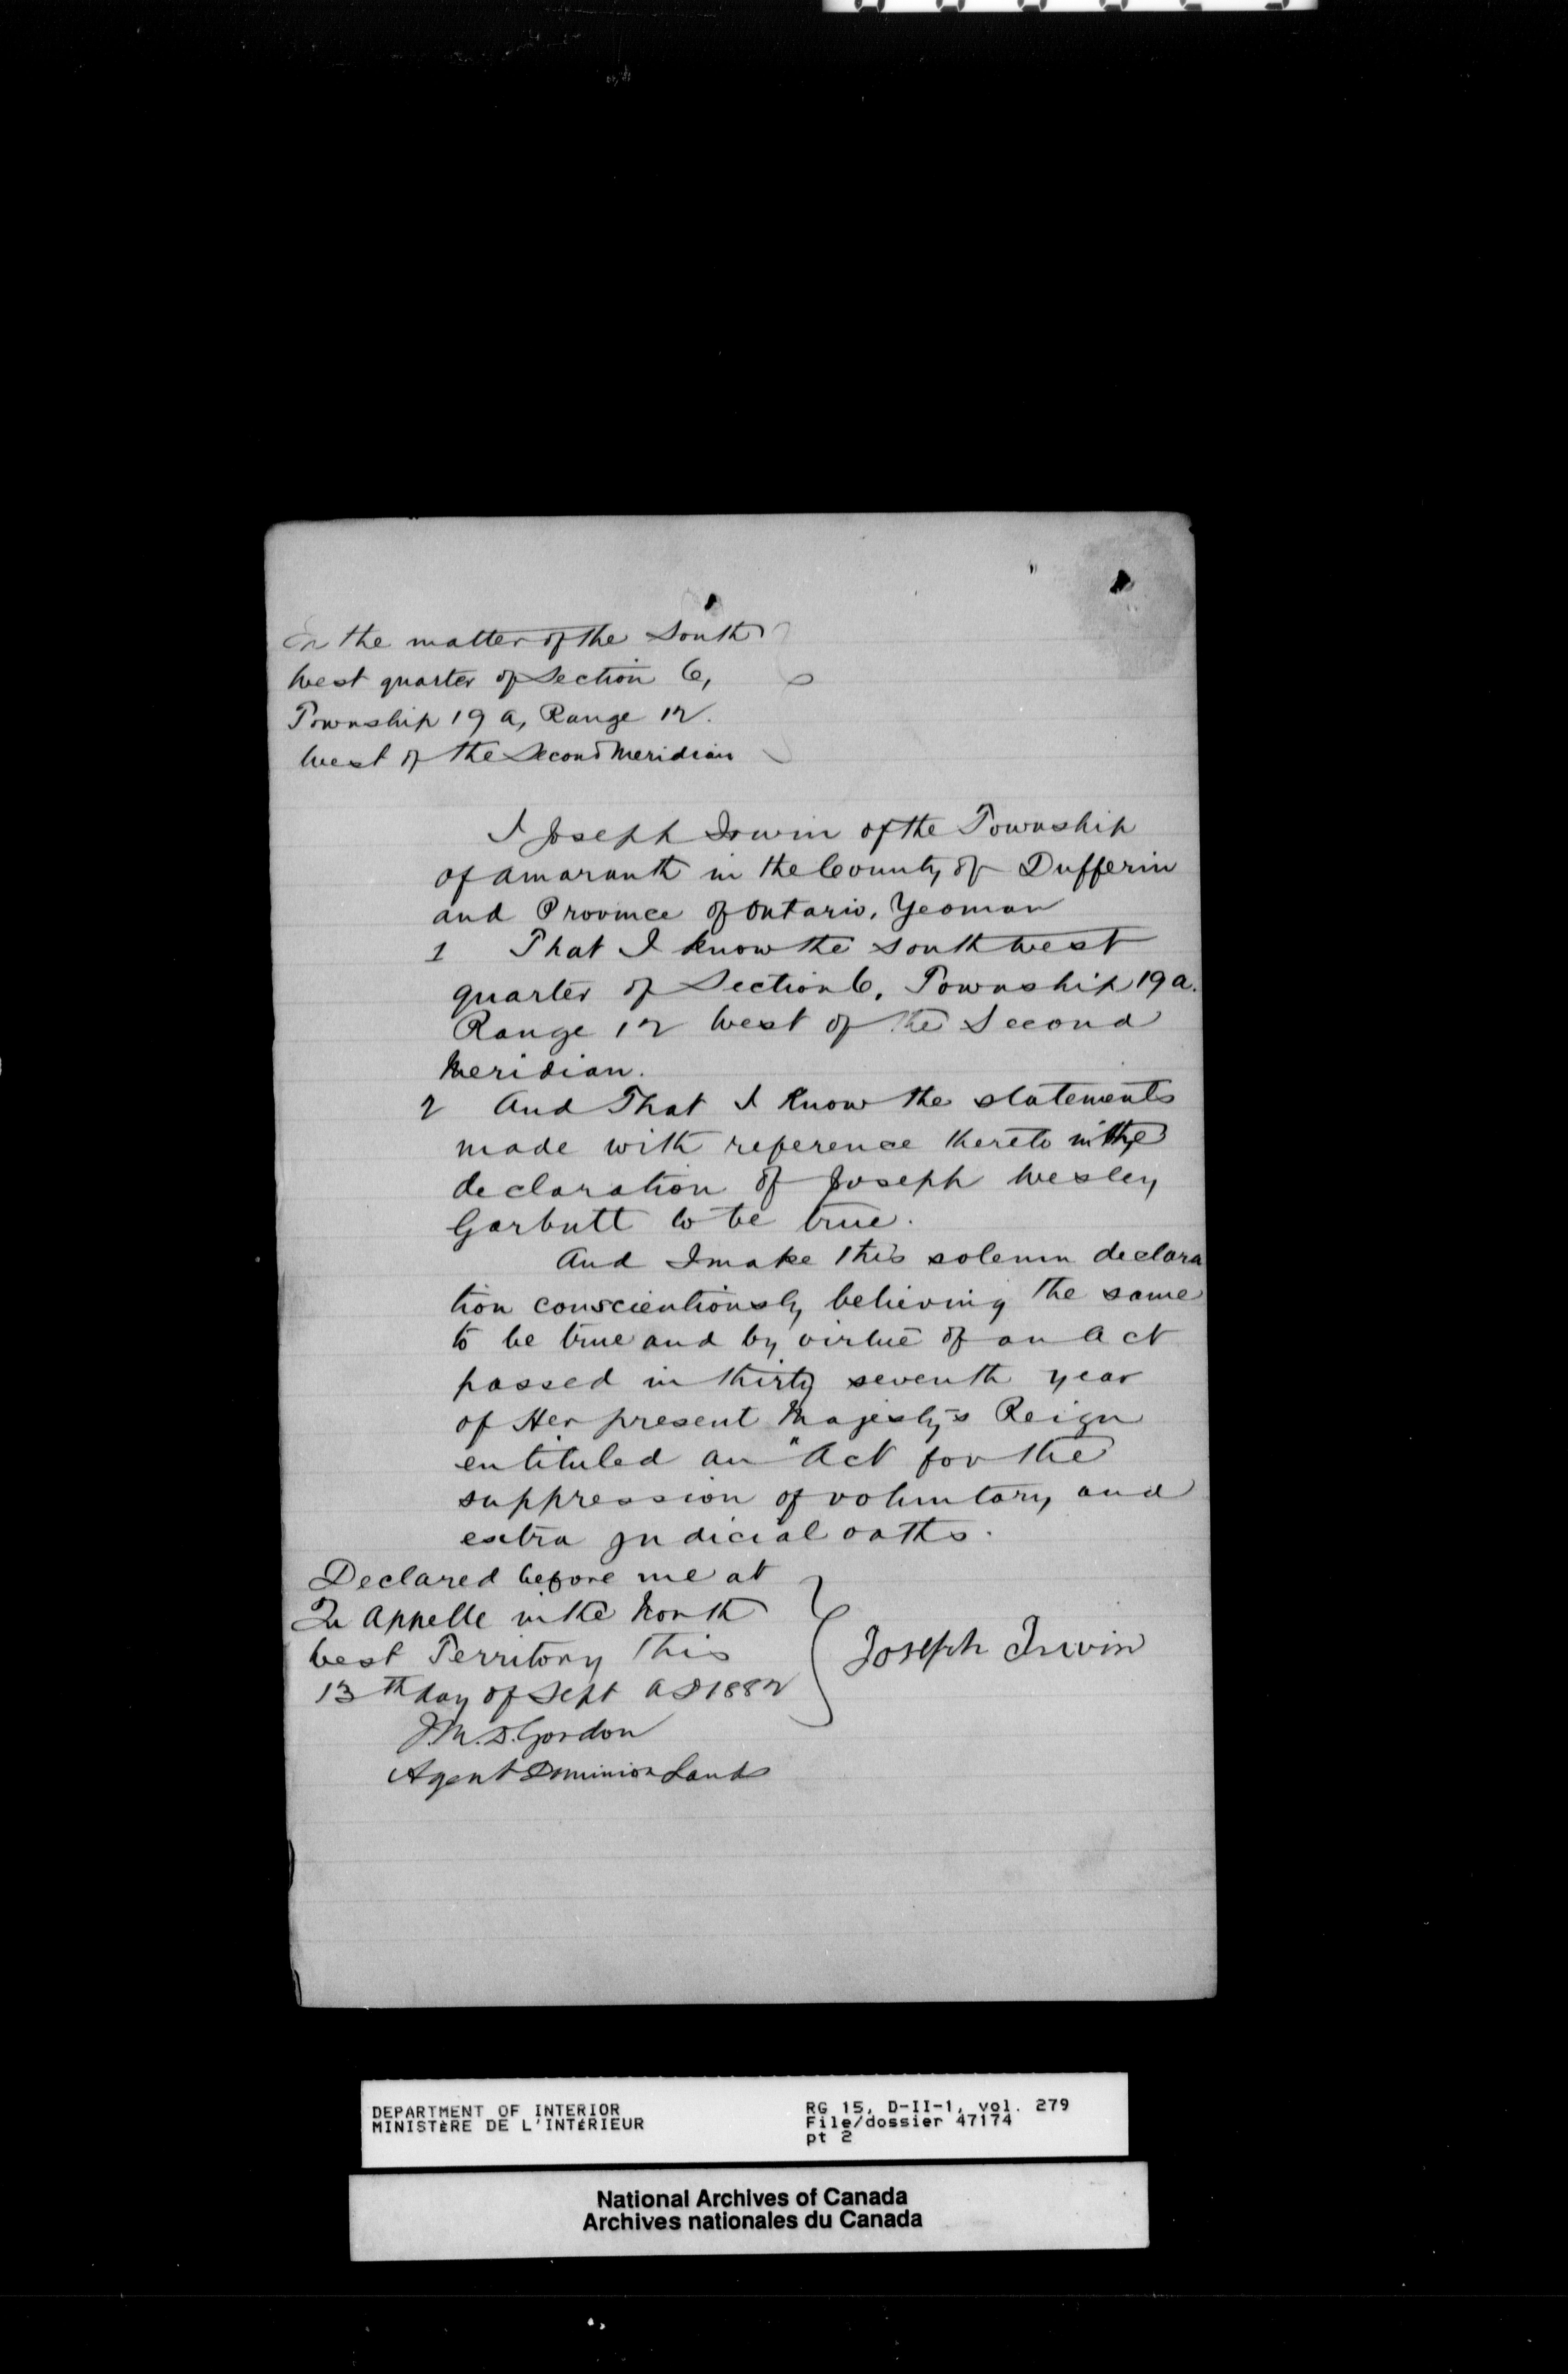 In the matter of the South
West quarter of Section 6,
Township 19 a, Range 12.
West of the Second Meridian
I Joseph Irwin of the Township
of Amaranth in the County of Dufferin
and Province of Ontario, Yeoman
1 That I know the South West
quarter of Section 6, Township 19 a.
Range 12 West of the Second
Meridian.
2 And That I know the statements
made with reference thereto in the
declaration of Joseph Wesley
Garbutt to be true.
And I make this solemn declara
tion conscientiously believing the same
to be true and by virtue of an Act
passed in thirty seventh year
of Her present Majesty's Reign
entituled an "Act for the
suppression of voluntary and
extra judicial oaths.
Declared before me at
Qu Appelle in the North
West Territory this
13th day of Sept AD 1882
Joseph Irwin
J.M.D. Gordon
Agent Dominion Lands
DEPARTMENT OF INTERIOR
MINISTÈRE DE L'INTÉRIEUR
RG 15, D-II-1, vol. 279
File/dossier 47174
pt 2
National Archives of Canada
Archives nationales du Canada